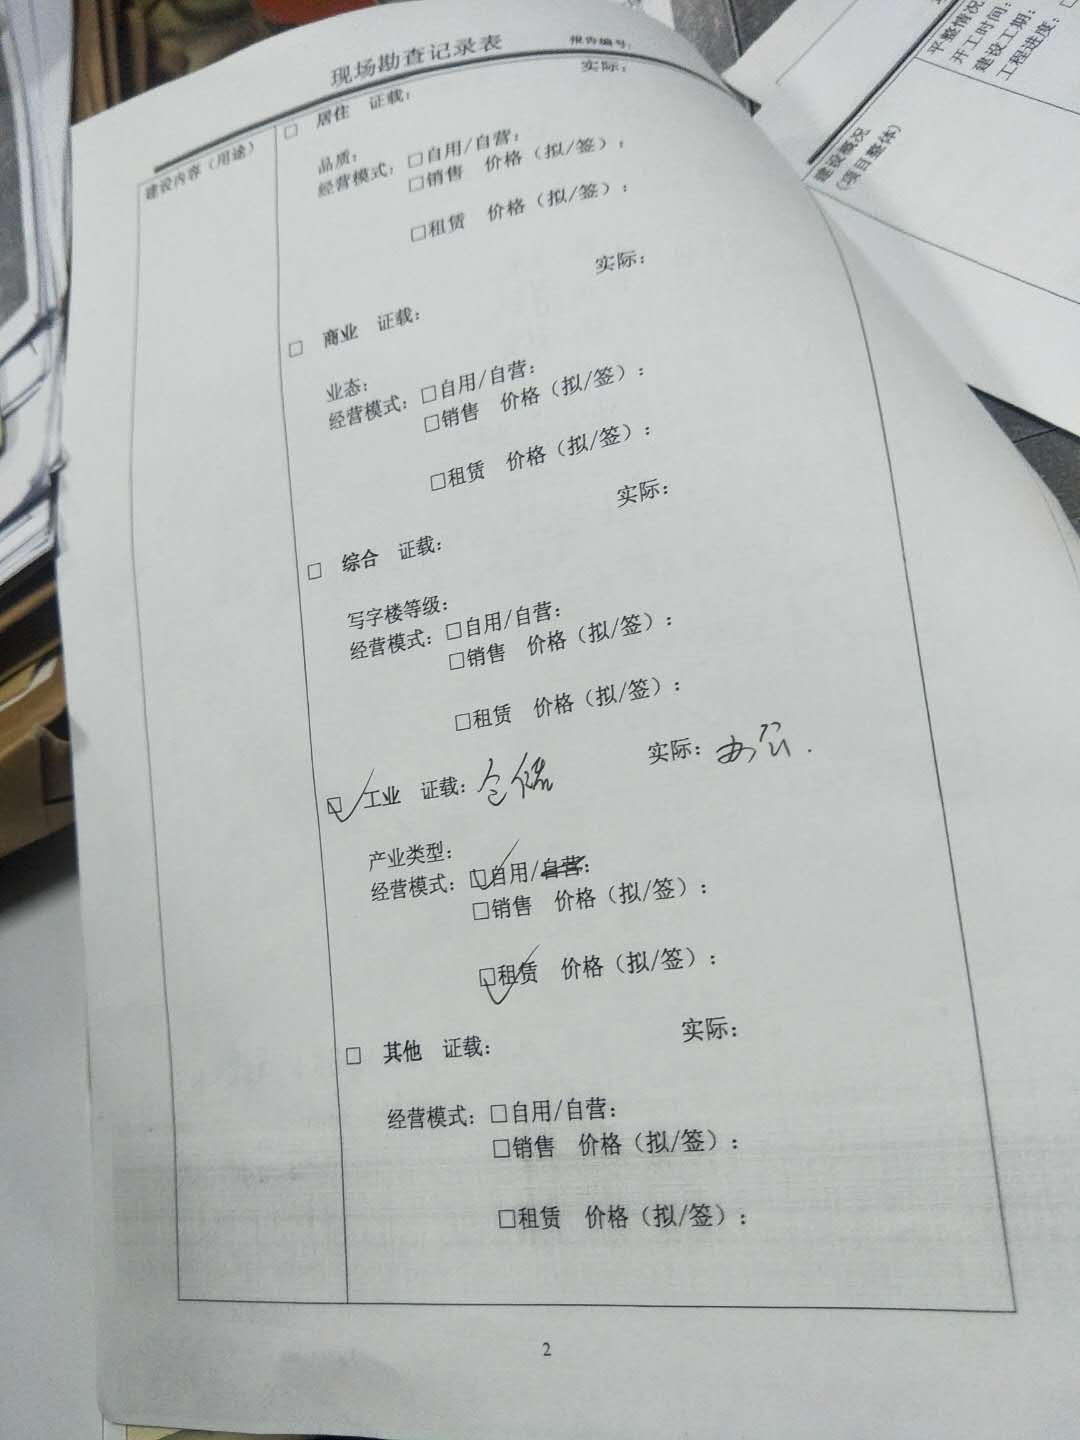 现场勘查记录表 报告编号:
建设内容（用途）
□ 居住 证载: 实际:
品质:
经营模式: □自用/自营:
□销售 价格（拟/签）:
□租赁 价格（拟/签）:
□ 商业 证载: 实际:
业态:
经营模式: □自用/自营:
□销售 价格（拟/签）:
□租赁 价格（拟/签）:
□ 综合 证载: 实际:
写字楼等级:
经营模式: □自用/自营:
□销售 价格（拟/签）:
□租赁 价格（拟/签）:
☑ 工业 证载: 仓储 实际: 办公.
产业类型:
经营模式: ☑自用/自营:
□销售 价格（拟/签）:
☑租赁 价格（拟/签）:
□ 其他 证载: 实际:
经营模式: □自用/自营:
□销售 价格（拟/签）:
□租赁 价格（拟/签）:
2
平整情况
开工时间:
建设工期:
工程进度: □
建设概况
（项目整体）